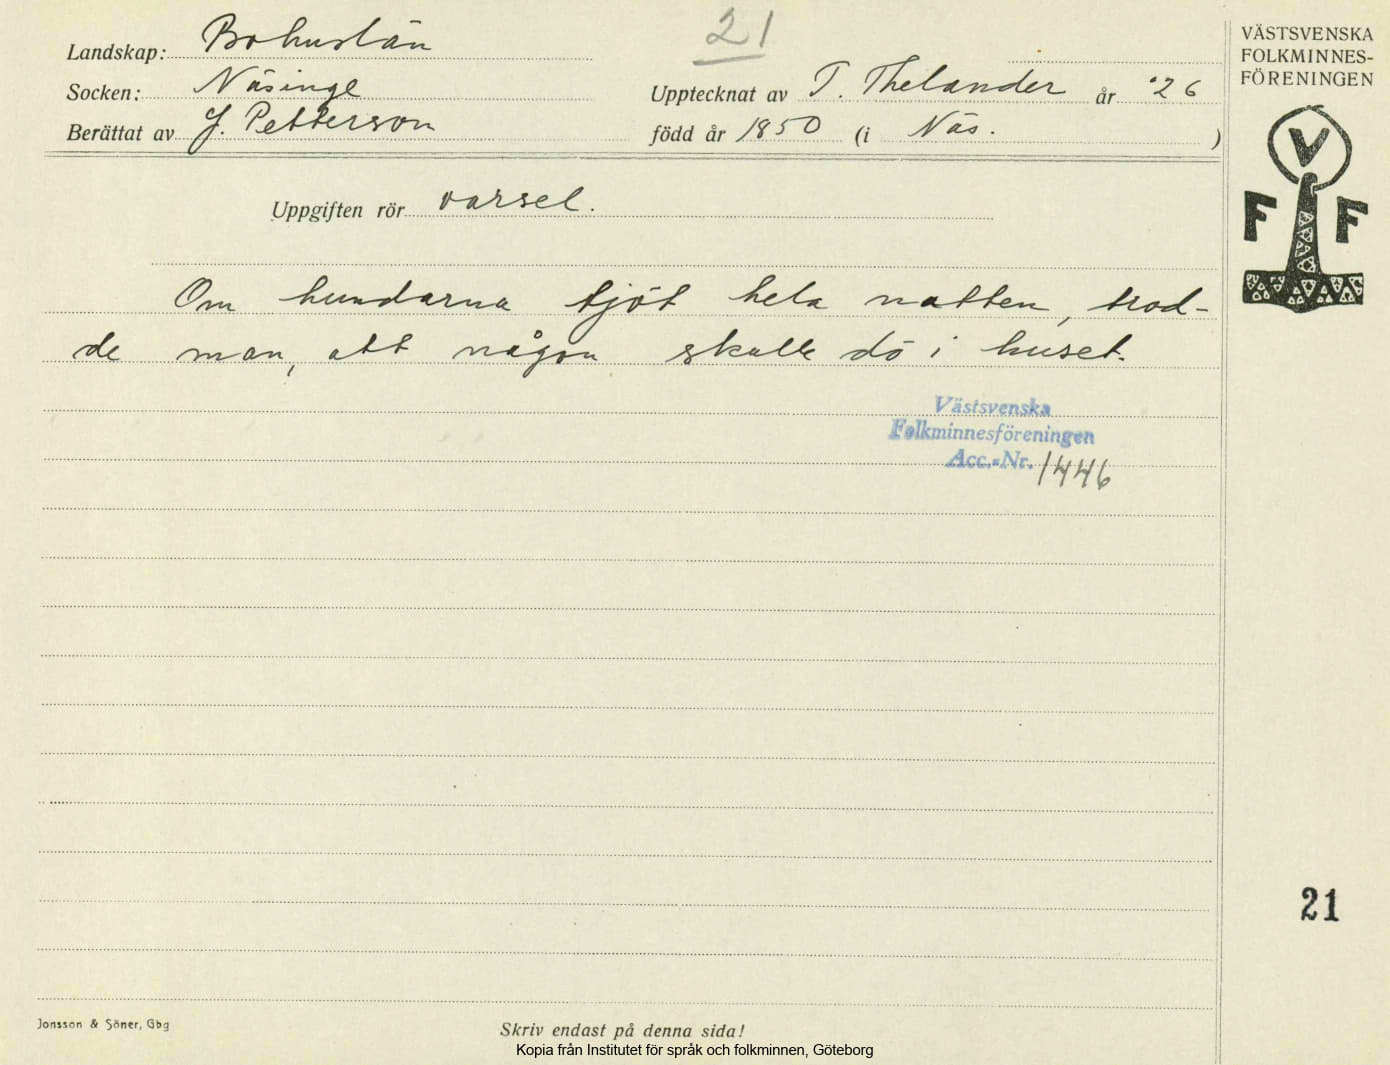 21
Landskap: Bohuslän
Socken: Näsinge
Berättat av J. Petterson
Upptecknat av T. Thelander år '26
född år 1850 (i Näs. )
VÄSTSVENSKA
FOLKMINNES-
FÖRENINGEN
V
F F
Uppgiften rör varsel.
Om hundarna tjöt hela natten, trod-
de man, att någon skulle dö i huset.
Västsvenska
Folkminnesföreningen
Acc.-Nr. 1446
21
Jonsson & Söner, Gbg
Skriv endast på denna sida!
Kopia från Institutet för språk och folkminnen, Göteborg